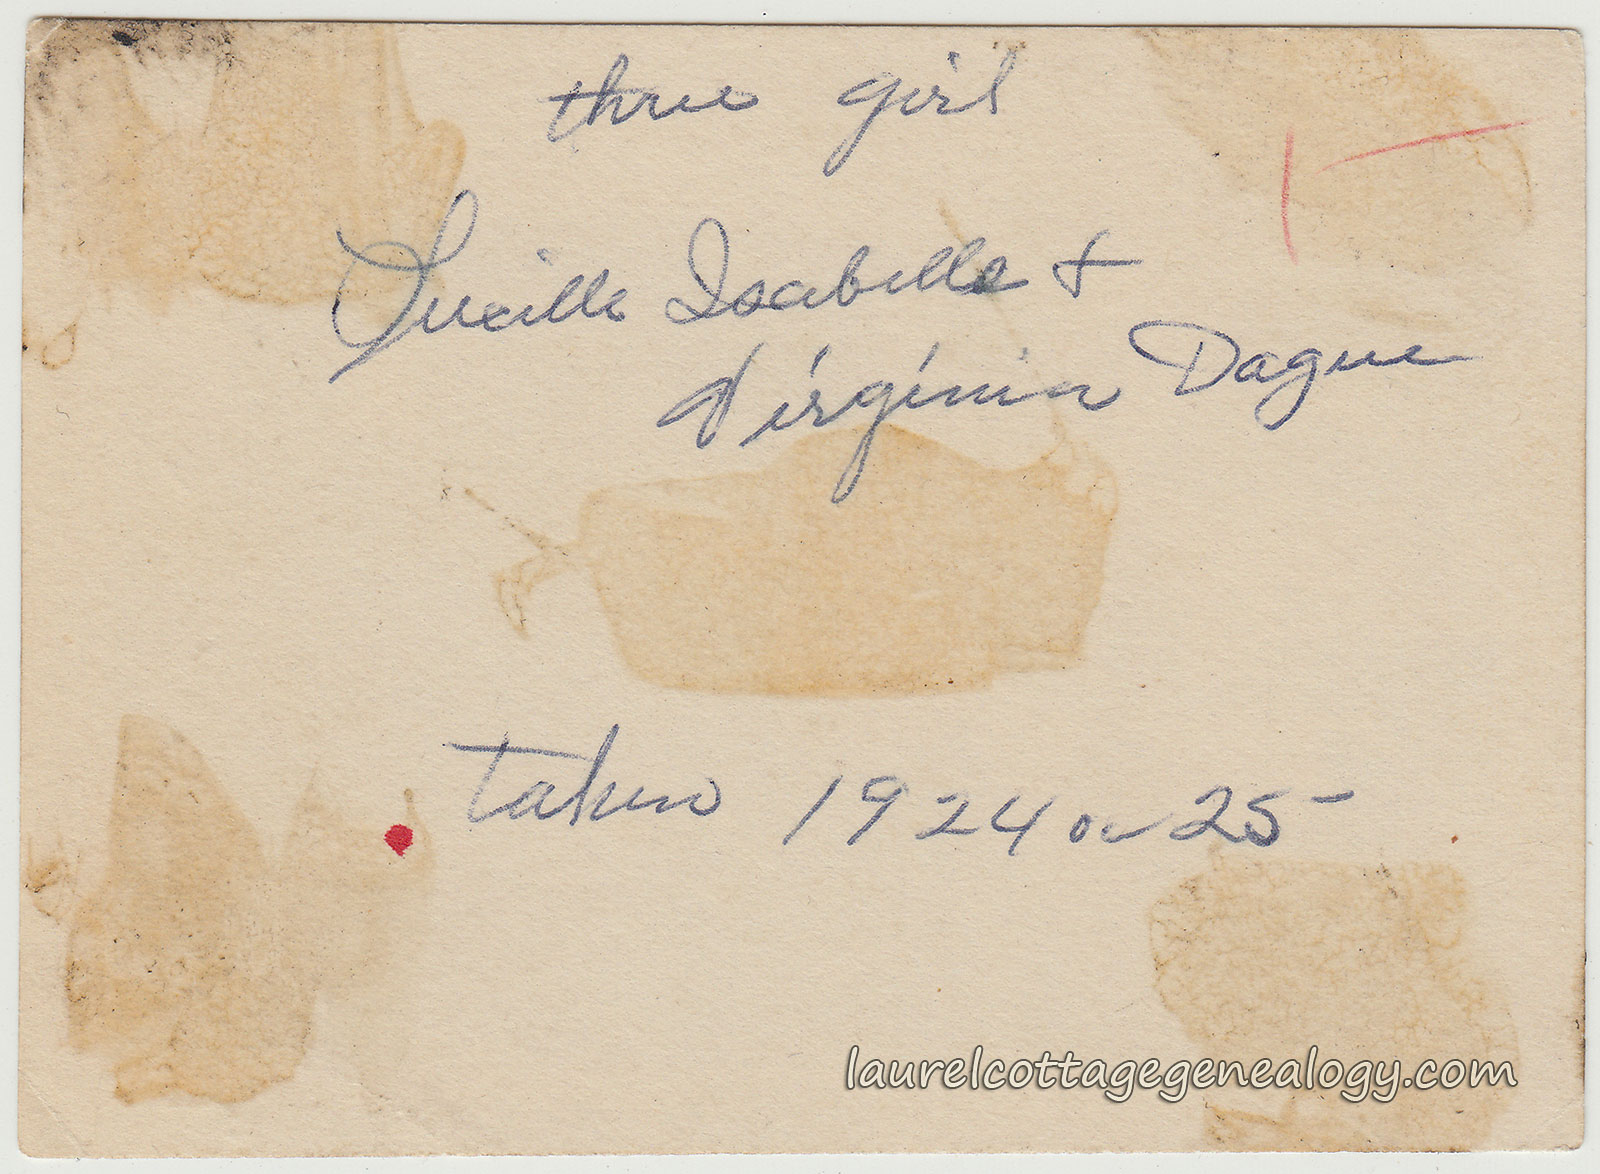 three girl
Lucille Isabelle &
Virginia Dague
taken 1924 or 25
laurelcottagegenealogy.com